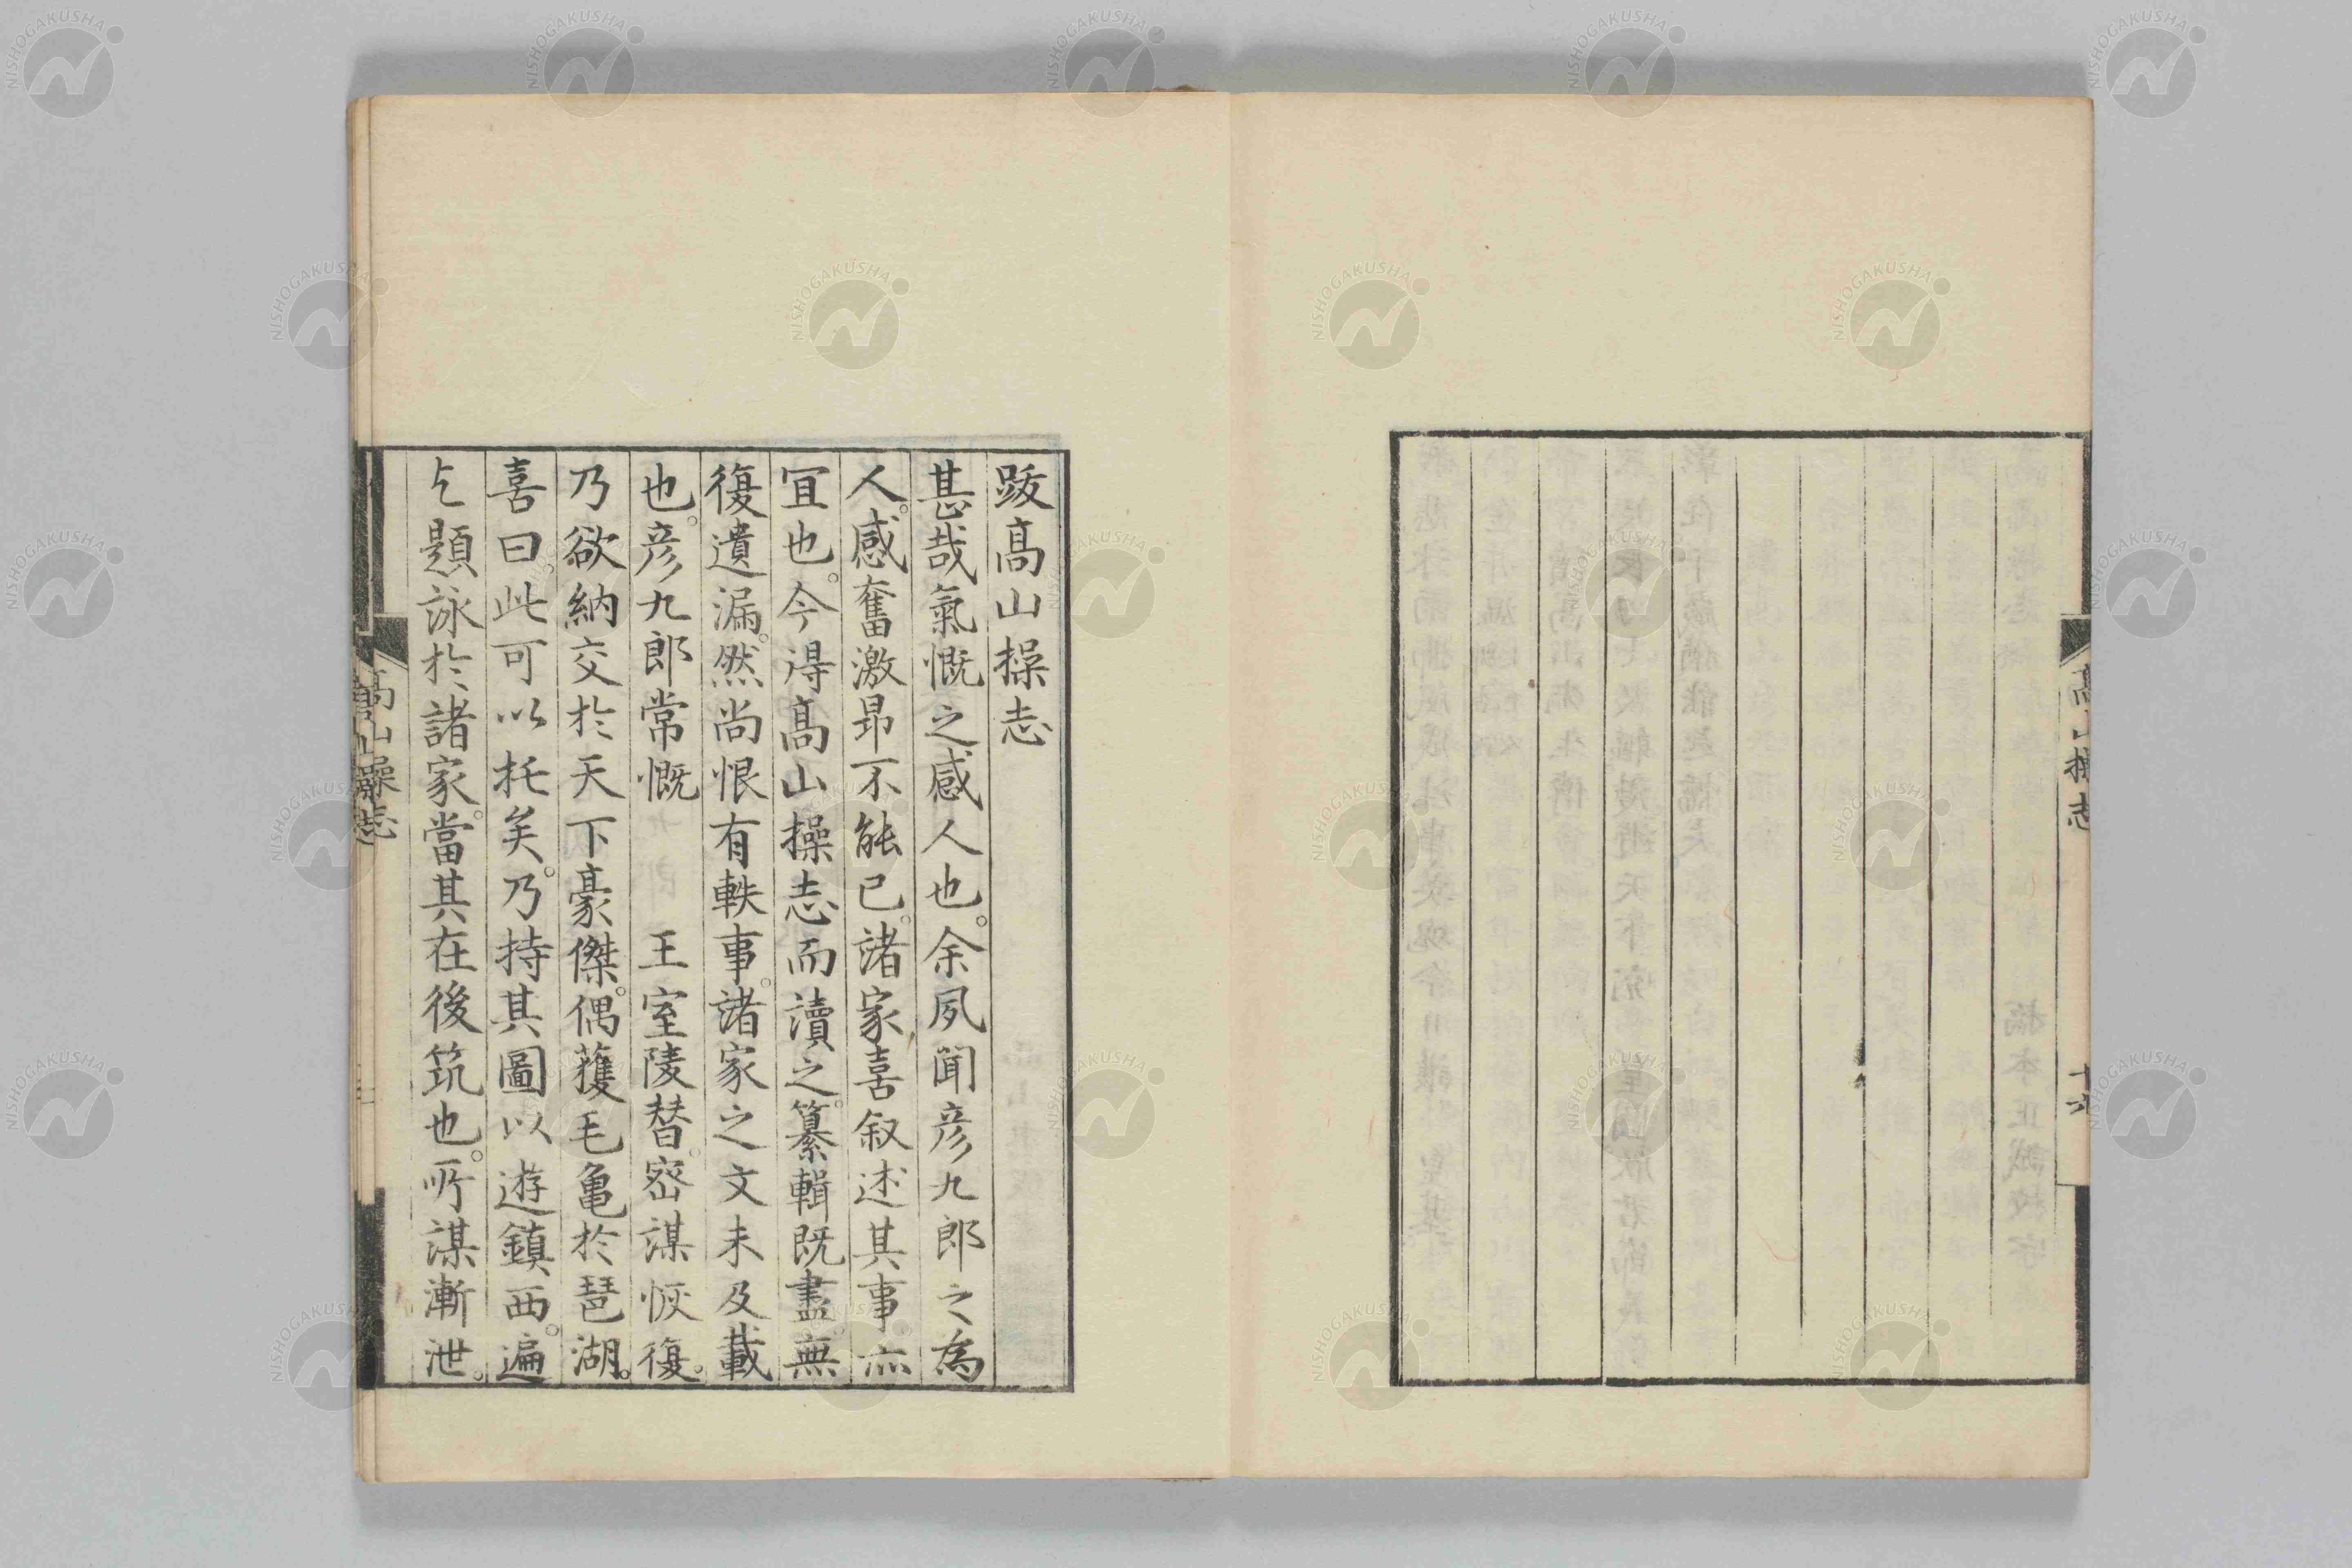 高山操志
十六
跋髙山操志
甚哉氣慨之感人也。余夙聞彦九郎之為
人。感奮激昻不能已。諸家喜叙述其事亦
冝也。今得髙山操志而讀之。纂輯既盡無
復遺漏。然尚恨有軼事。諸家之文未及載
也。彦九郎常慨　王室陵替。宻謀恢復。
乃欲納交於天下豪傑。偶獲毛亀於琶湖。
喜曰。此可以托矣。乃持其圖以遊鎮西。遍
乞題詠於諸家。當其在後筑也。所謀漸泄。
高山操志
NISHOGAKUSHA